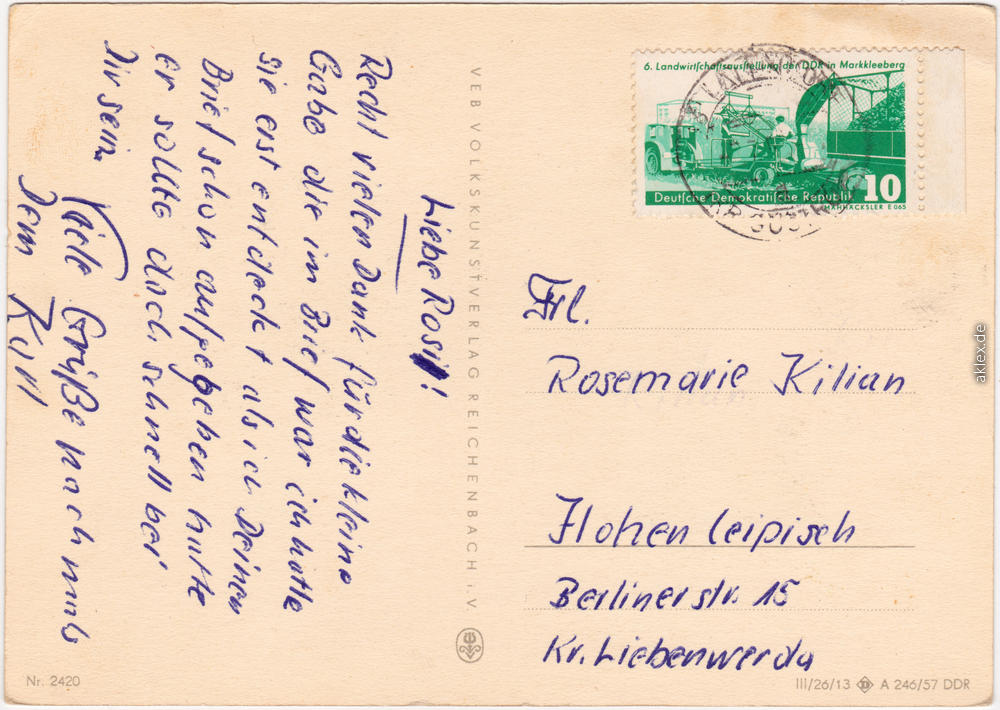 Liebe Rosi!
Recht vielen Dank für die kleine
Gabe die im Brief war ich hatte
sie erst entdeckt als ich Deinen
Brief schon aufgegeben hatte
er sollte doch schnell bei
Dir sein.
Viele Grüße nochmals
Dein
VEB VOLKSKUNSTVERLAG REICHENBACH i.V.
6. Landwirtschaftsausstellung der DDR in Markkleeberg
10
Deutsche Demokratische Republik
MÄHHÄCKSLER E 065
Frl.
Rosemarie Kilian
Hohenleipisch
Berlinerstr. 15
Kr. Liebenwerda
Nr. 2420
III/26/13 A 246/57 DDR
aklex.de